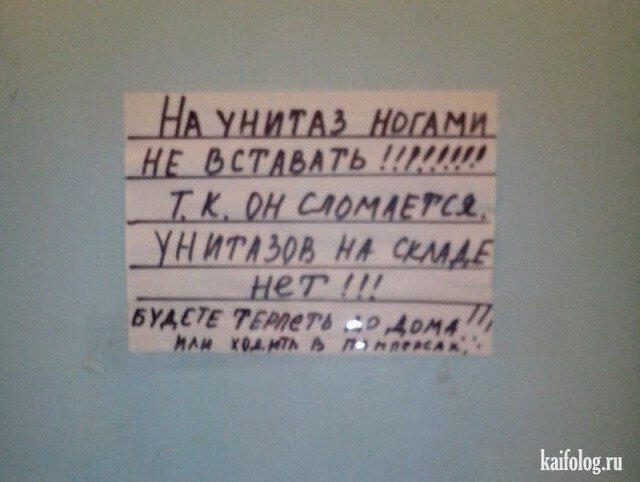 НА УНИТАЗ НОГАМИ
НЕ ВСТАВАТЬ !!!!!!!!!
Т.К. ОН СЛОМАЕТСЯ.
УНИТАЗОВ НА СКЛАДЕ
НЕТ !!!
БУДЕТЕ ТЕРПЕТЬ ДО ДОМА !!!
ИЛИ ХОДИТЬ В ПАМПЕРСАХ
kaifolog.ru